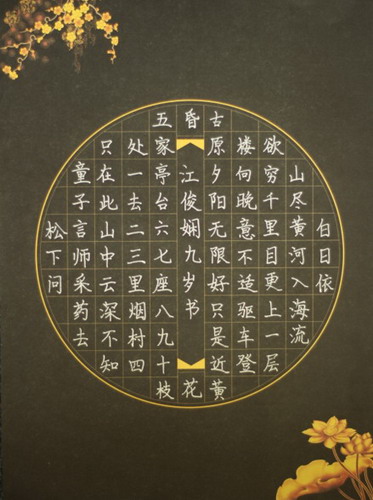 白日依
山尽黄河入海流
欲穷千里目更上一层
楼向晚意不适驱车登
古原夕阳无限好只是近黄
昏
江俊娴九岁书
处一去二三里烟村四
五家亭台六七座八九十枝
花
只在此山中云深不知
童子言师采药去
松下问